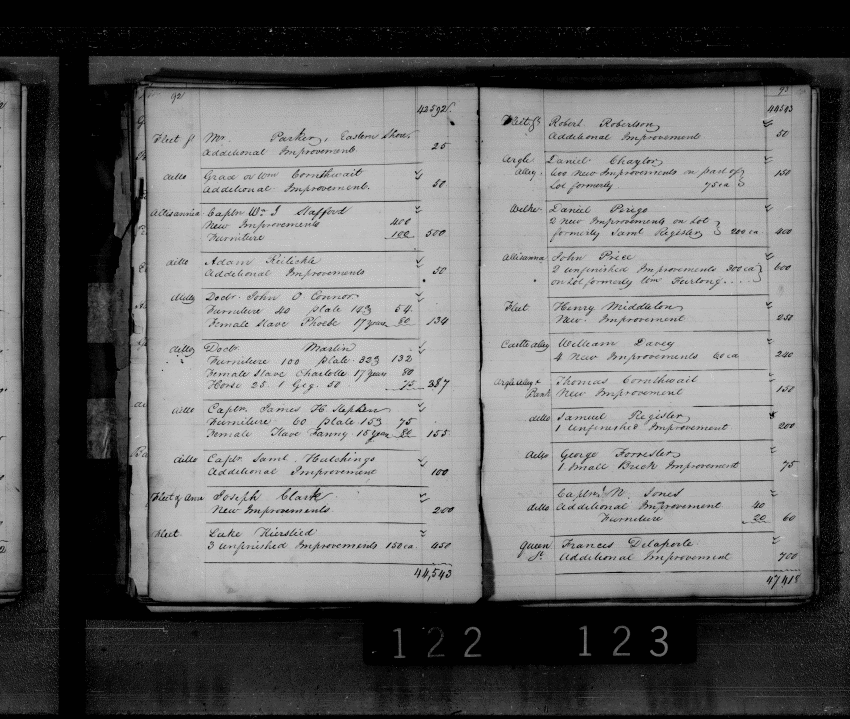 92
42592
Fleet St Mr. Parker, Eastern Shore
Additional Improvements 25
ditto Grad or Wm Cornthwait
Additional Improvement. 50
Allisannia Captn Wm J Stafford
New Improvements 400
Furniture 100 500
ditto Adam
Additional Improvements 50
ditto Doctr John O Connor
Furniture 40 plate 14 54
Female Slave Phoebe 17 years 80 134
ditto Doctr Martin
Furniture 100 plate 32 132
Female Slave Charlotte 17 years 80
Horse 25. 1 Gig 50. 75 287
ditto Captn James H Stephen
Furniture 60 plate 15 75
Female Slave Fanny 15 years 80 155
ditto Captn Saml. Hutchings
Additional Improvement 100
Fleet & Ann Joseph Clark
New Improvements 200
Fleet Luke
3 unfinished Improvements 150 ea. 450
44,543
93
44543
Fleet St Robert Robertson
Additional Improvement 50
Argle Daniel Chaytor
alley New Improvements on part of 150
Lot formerly 75 ea
Wilkes Daniel Perigo
2 New Improvements on Lot
formerly Saml Register 200 ea 400
Allisanna John Price
2 unfinished Improvements 300 ea 600
on Lot formerly Wm Furlong
Fleet Henry Middleton
New Improvement 250
Castle alley William Davey
4 New Improvements 60 ea 240
Argle alley & Thomas Cornthwait
Bank New Improvement 150
ditto Samuel Register
1 unfinished Improvement 200
ditto George Forrester
1 Small Brick Improvement 75
Captn N. Jones
ditto Additional Improvement 40
Furniture 20 60
Queen Frances Delaporte
St. Additional Improvement 700
47418
122 123